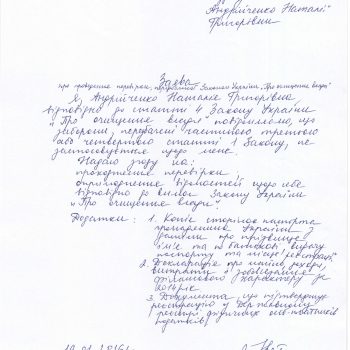 Андрійченко Наталії
Григорівни
Заява
про проведення перевірки, передбаченої Законом України „Про очищення влади"
Я, Андрійченко Наталія Григорівна,
відповідно до статті 4 Закону України
„Про очищення влади" повідомляю, що
заборони, передбачені частиною третьою
або четвертою статті 1 Закону, не
застосовуються щодо мене.
Надаю згоду на:
проходження перевірки
оприлюднення відомостей щодо себе
відповідно до вимог Закону України
„Про очищення влади".
Додатки: 1. Копії сторінок паспорта
громадянина України з
даними про прізвище,
ім'я та по батькові, видачу
паспорту та місце реєстрації
2. Декларація про майно, доходи,
витрати і зобов'язання
фінансового характеру за
2014 рік
3. Документа, що підтверджує
реєстрацію у Державному
реєстрі фізичних осіб-платників
податків